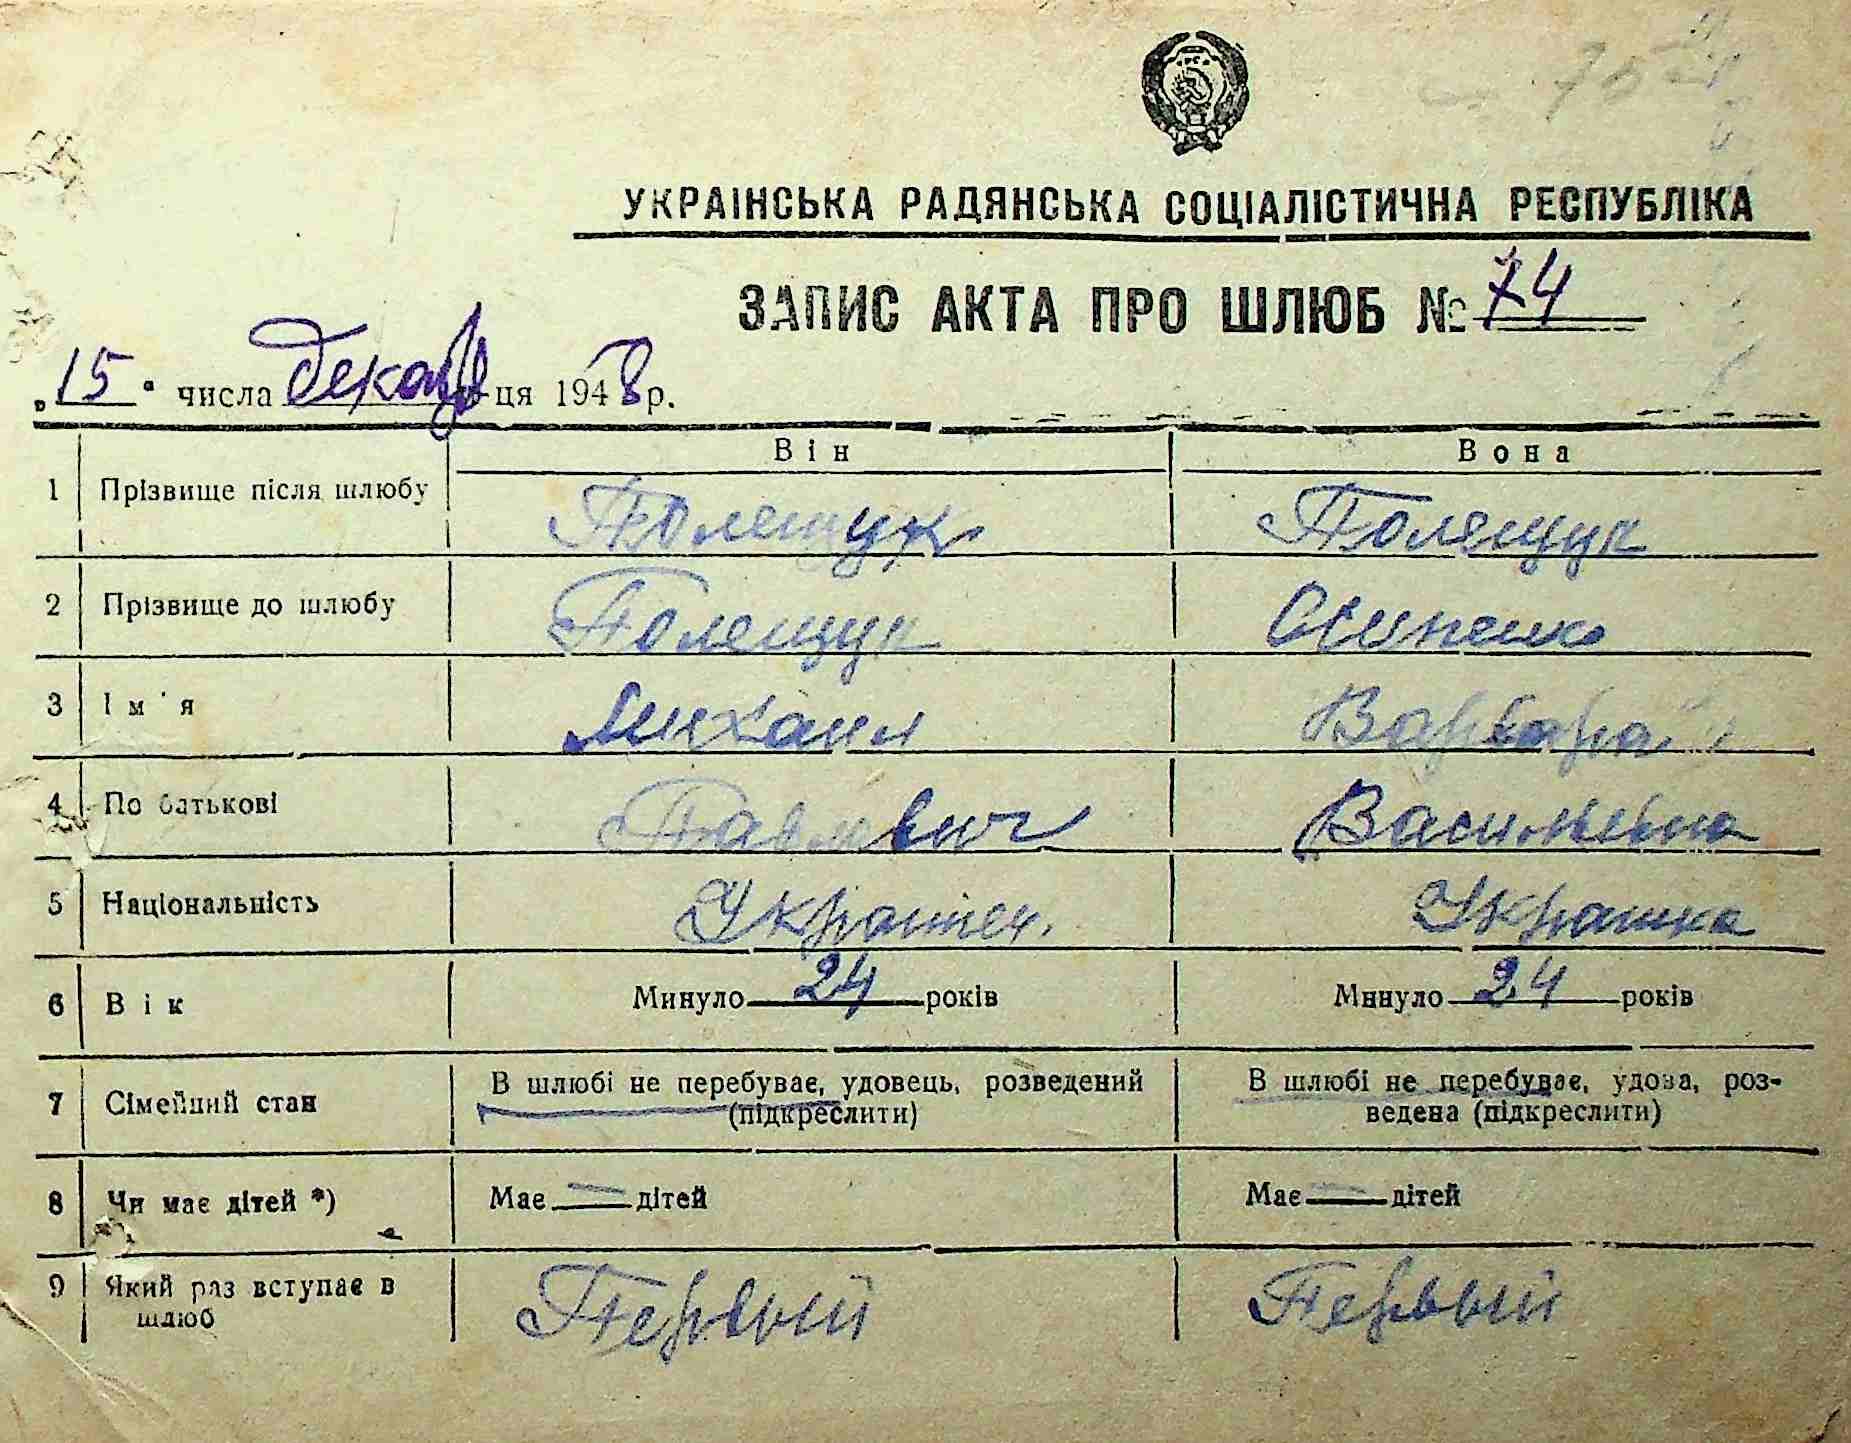 УКРАІНСЬКА РАДЯНСЬКА СОЦІАЛІСТИЧНА РЕСПУБЛІКА
ЗАПИС АКТА ПРО ШЛЮБ № 74
„15" числа декабря ця 1948 р.
Він Вона
1 Прізвище після шлюбу Полещук Полещук
2 Прізвище до шлюбу Полещук
3 Ім'я Михаил Варвара
4 По батькові Павлович Васильевна
5 Національність Украинец. Украинка
6 Вік Минуло 24 років Минуло 24 років
7 Сімейний стан В шлюбі не перебуває, удовець, розведений (підкреслити) В шлюбі не перебуває, удова, роз-
ведена (підкреслити)
8 Чи має дітей *) Має — дітей Має — дітей
9 Який раз вступає в шлюб Первый Первый